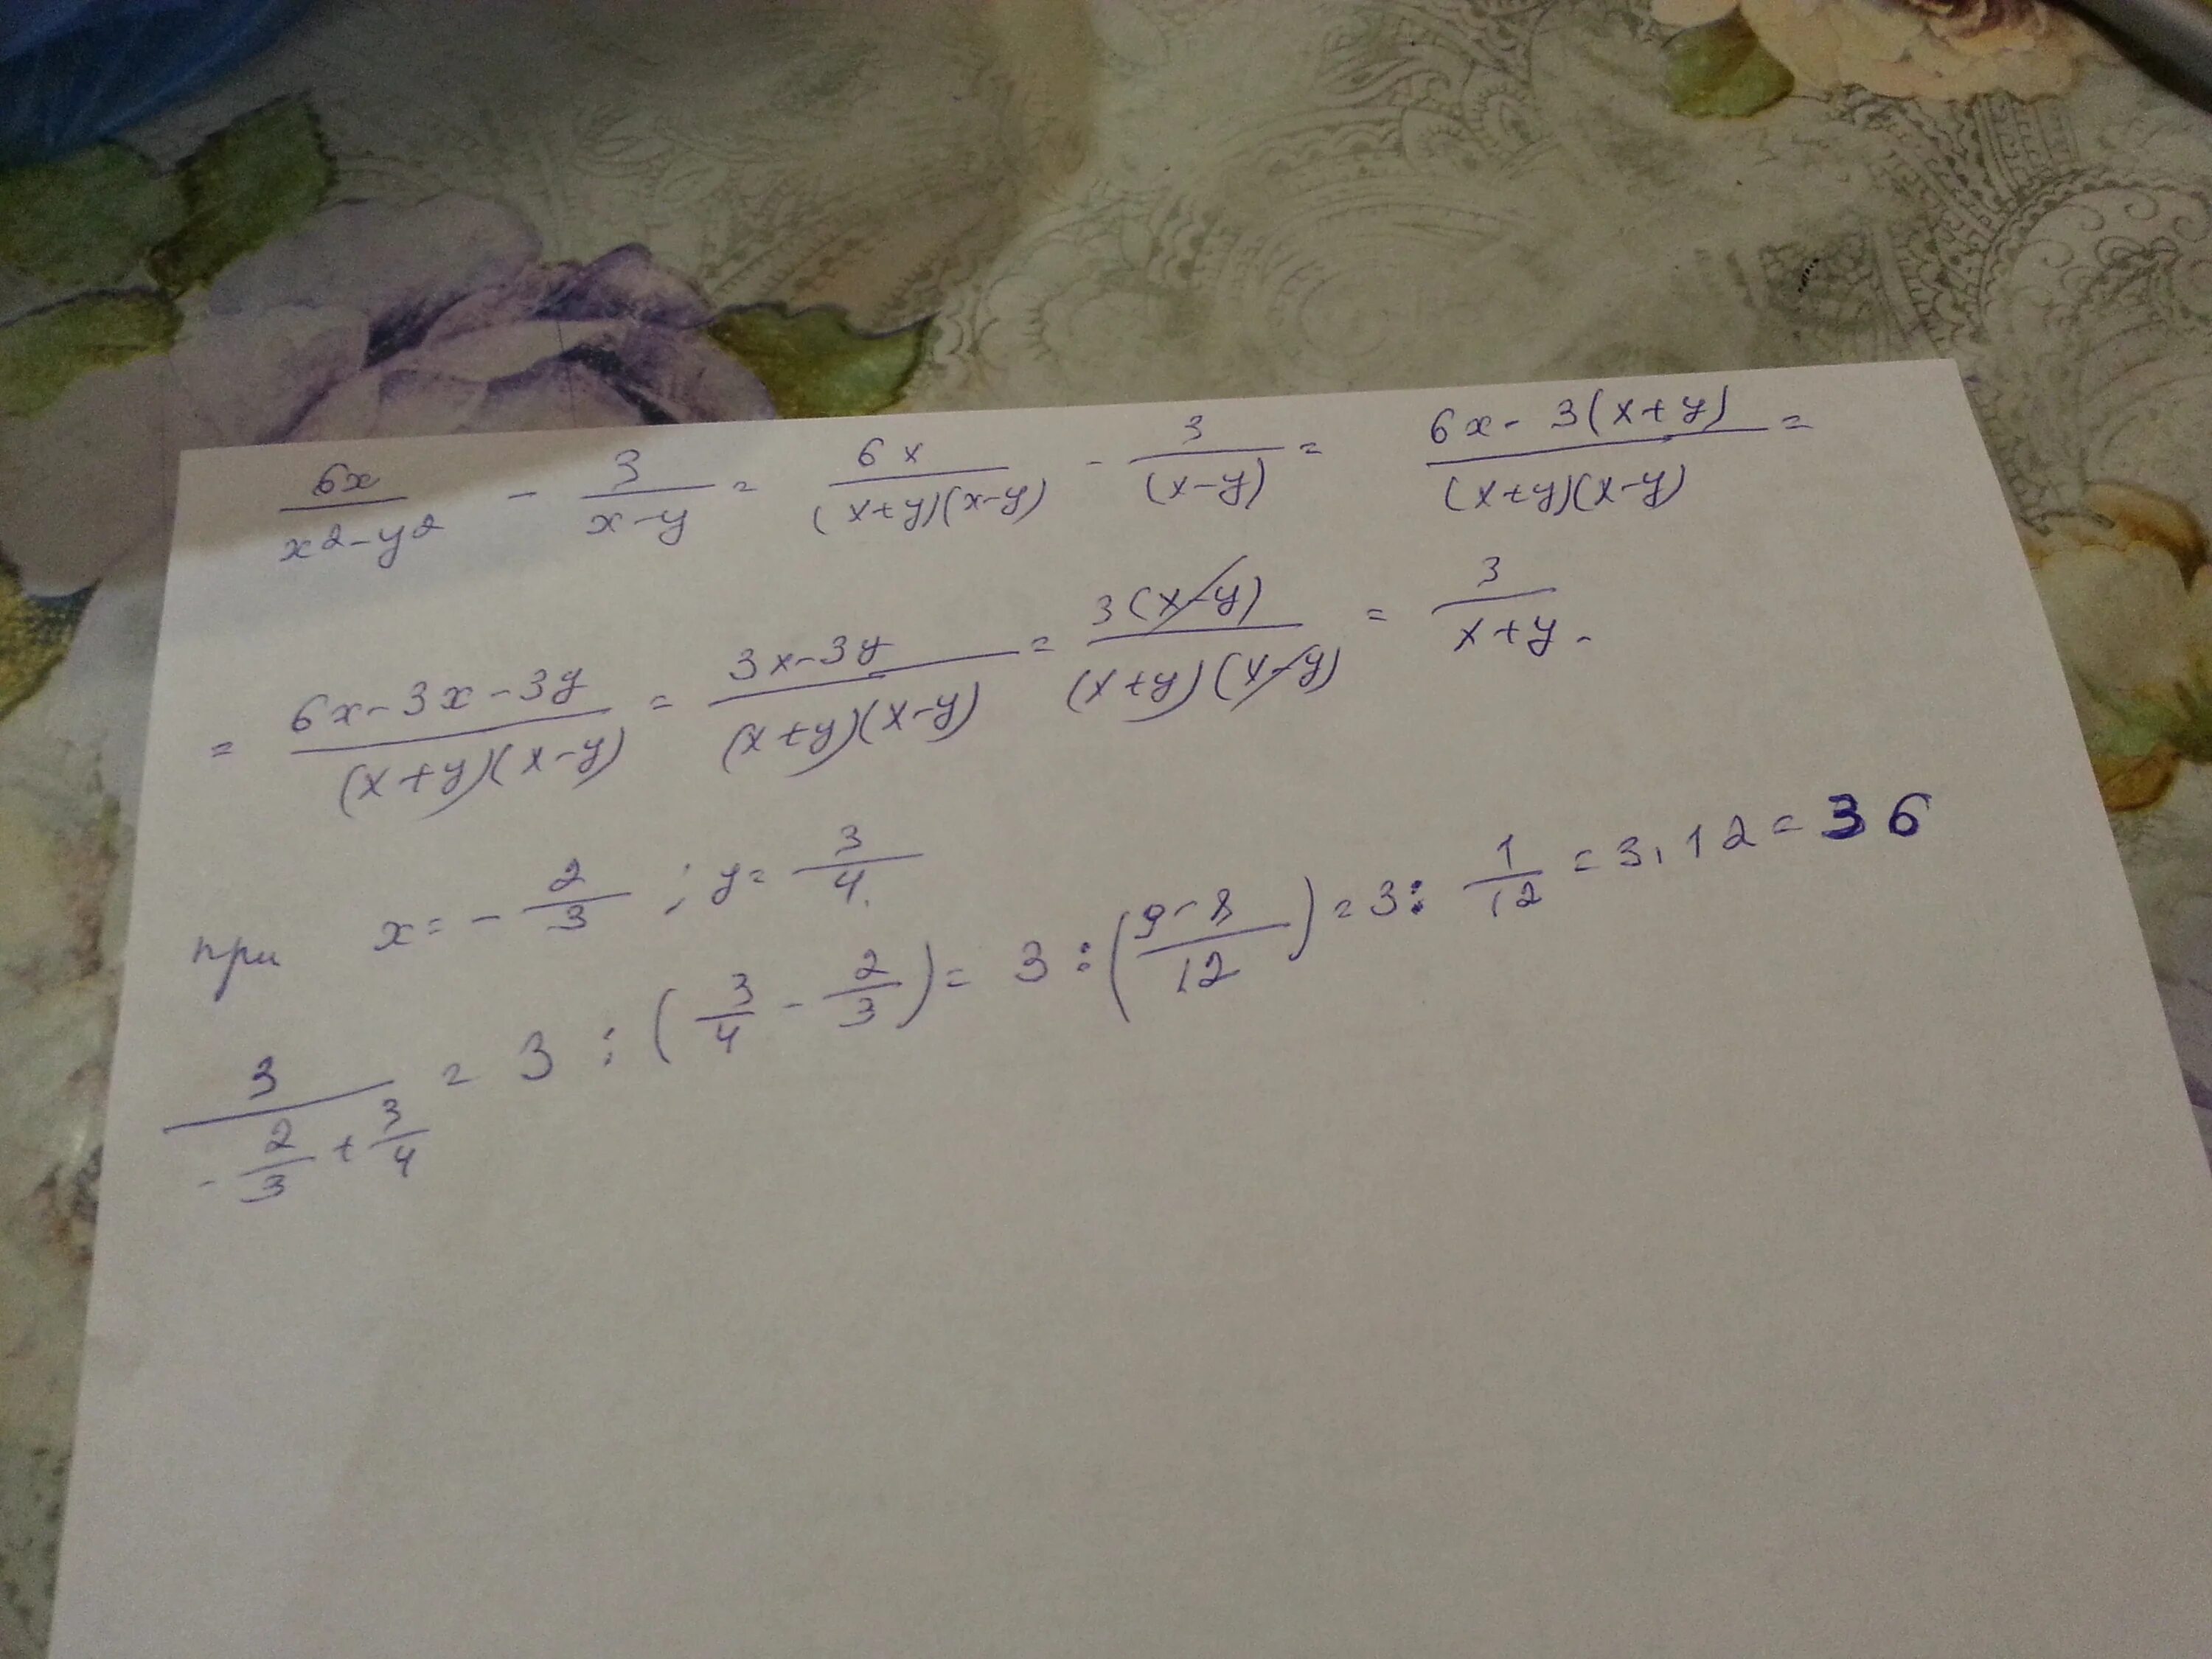 6x/(x2-y2) - 3/(x-y) = 6x/((x+y)(x-y)) - 3/(x-y) = (6x-3(x+y))/((x+y)(x-y)) =
= (6x-3x-3y)/((x+y)(x-y)) = (3x-3y)/((x+y)(x-y)) = 3(x-y)/((x+y)(x-y)) = 3/(x+y).
при x=-2/3; y=3/4.
3/(-2/3+3/4) = 3:(3/4-2/3) = 3:((9-8)/12) = 3:1/12 = 3.12=36